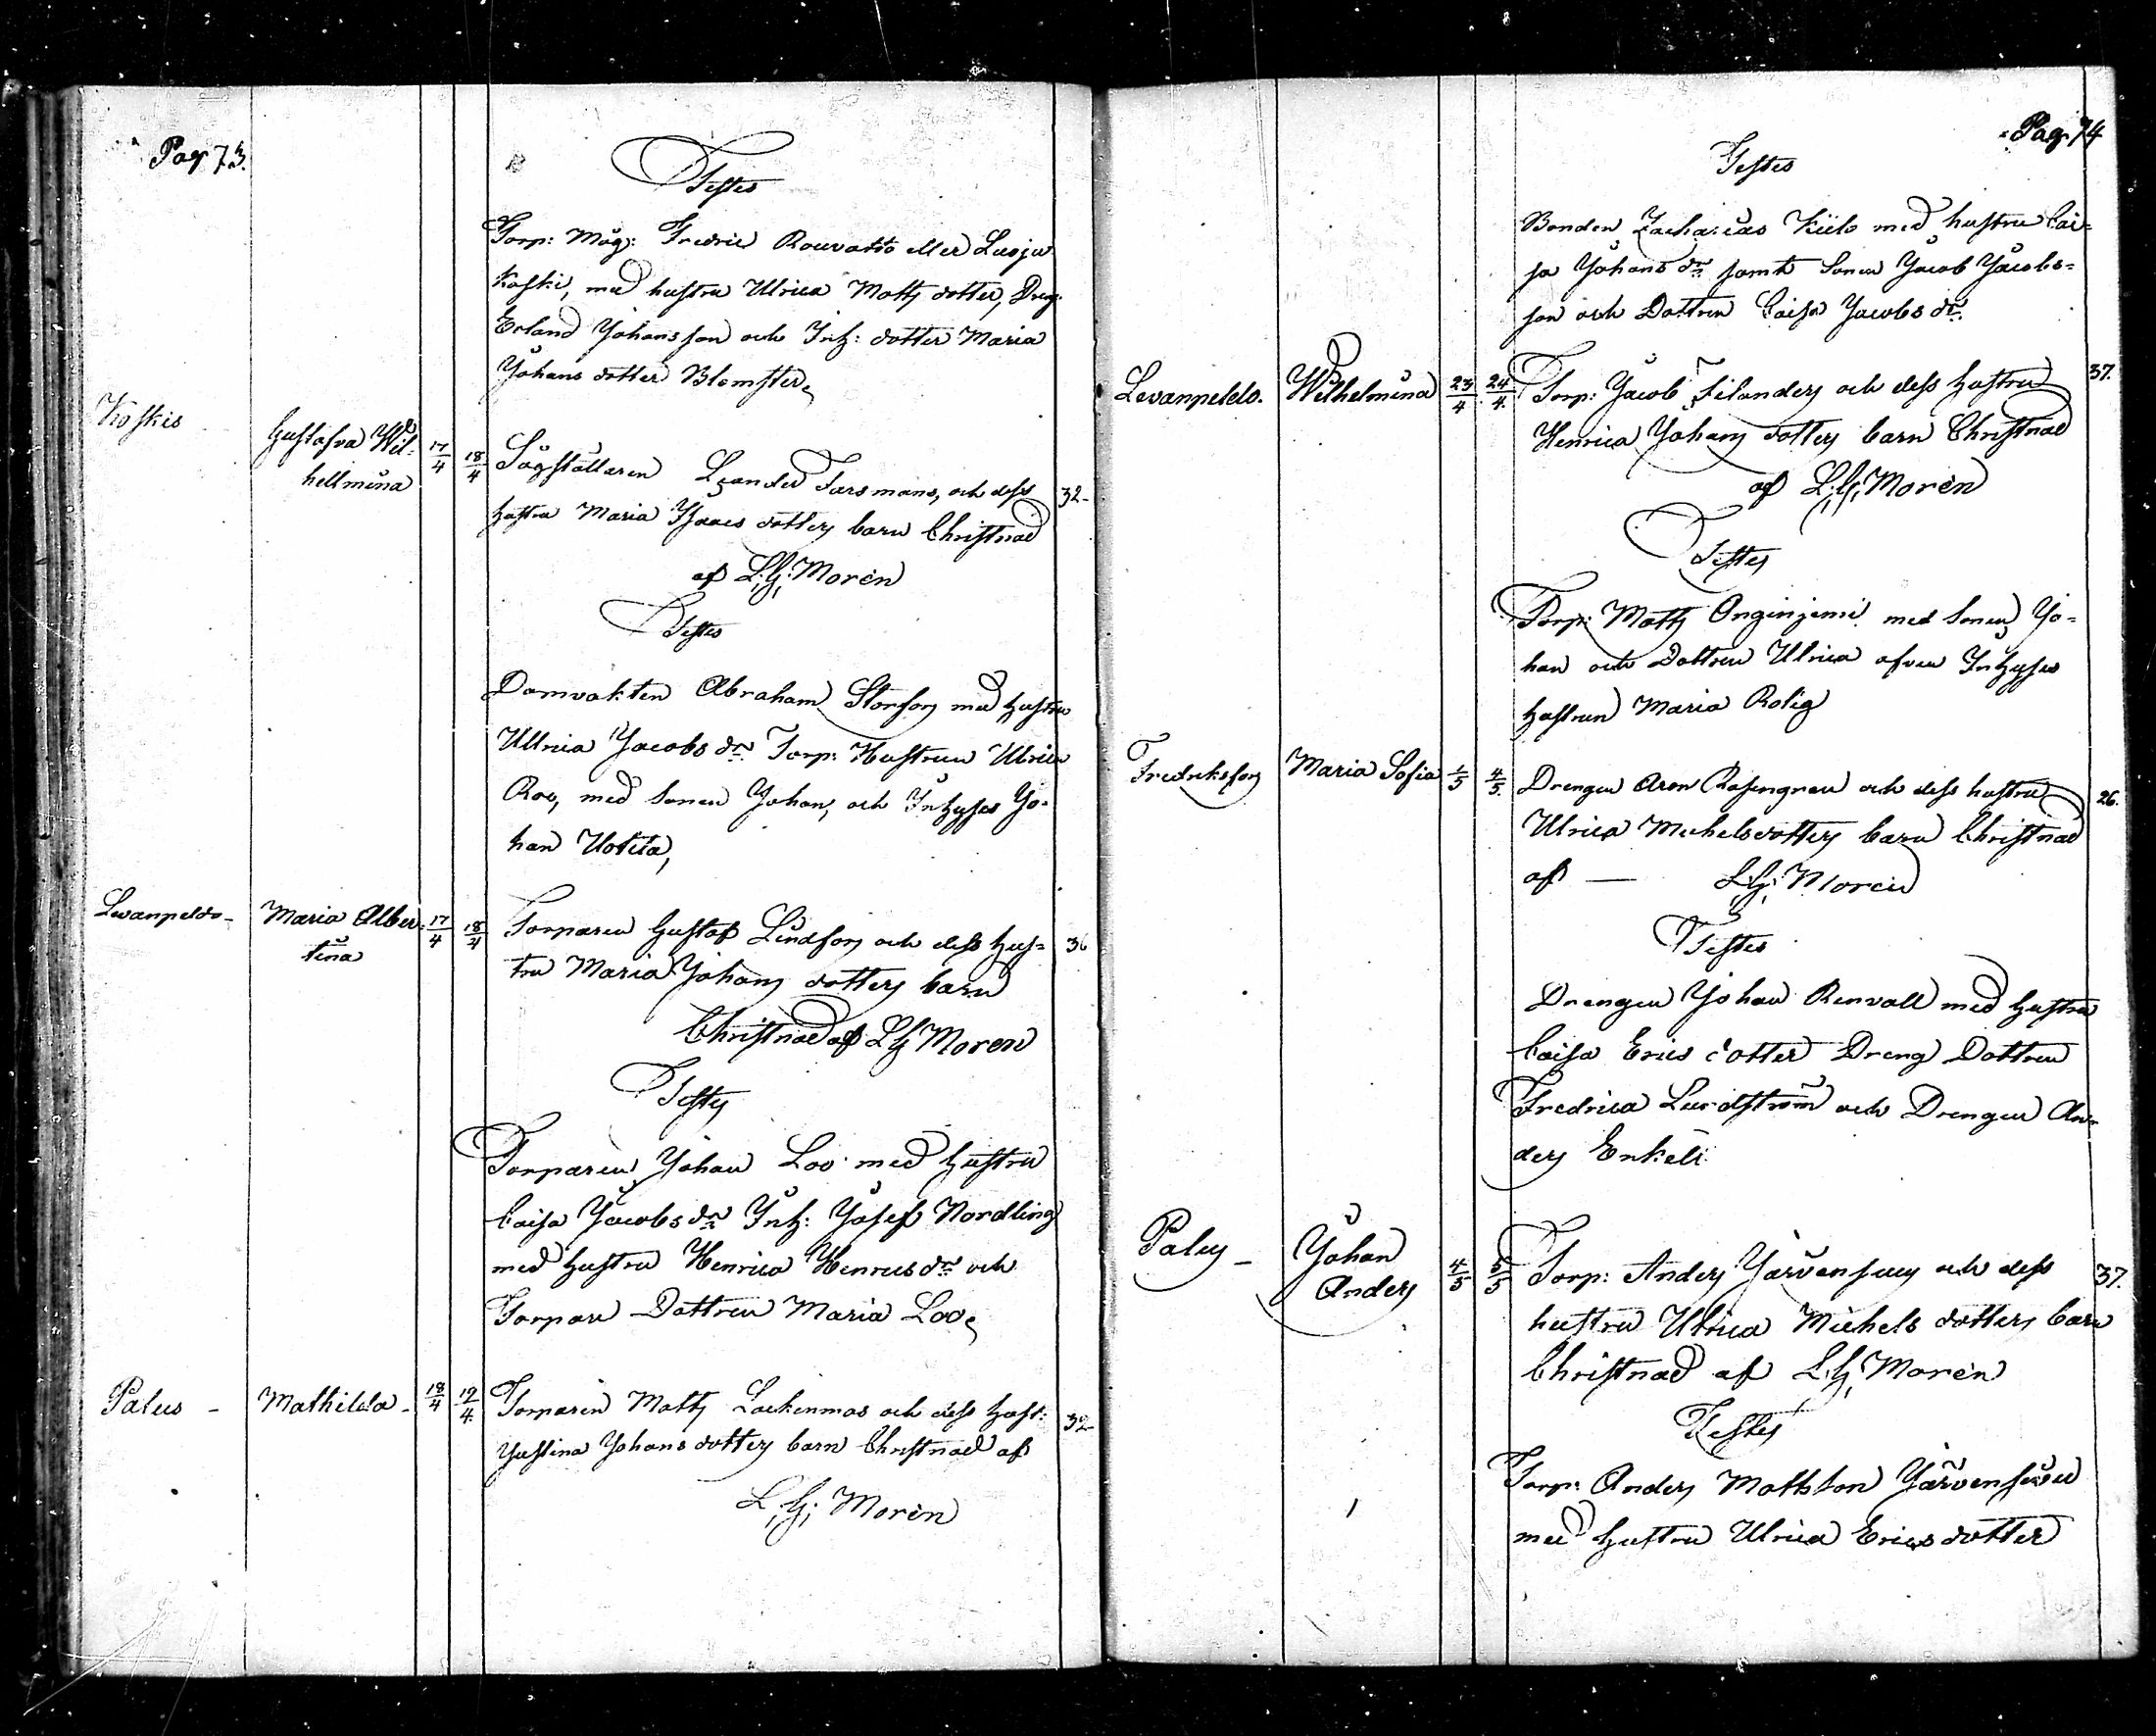 Pag 73.
Testes
Torp: Måg: Fredric Rouvatto eller Lusju
koski, med hustru Ulrica Matts dotter, Dreng
Erland Johansson och Inh: dotter Maria
Johans dotter Blomster,
Koskis Gustafva Wil= 17/4 18/4 Sågställaren Leander Farsmans, och dess 32
hellmina hustru Maria Isaacs dotters barn Christnad
af L: G: Morén
Testes
Damvakten Abraham Storfors med hustru
Ulrica Jacobs dr. Torp: Hustrun Ulrica
Roo, med Sonen Johan, och Inhyses Jo-
han Uotila,
Levanpeldo- Maria Alber- 17/4 18/4 Torparen Gustaf Lindfors och dess hus= 36
tina tru Maria Johans dotters barn
Christnad af L G Moren
Testes
Torparen Johan Loo med hustru
Caisa Jacobs dr Inh: Josef Nordling
med hustru Henrica Henrics dr och
Torpare Dottren Maria Loo,
Palus - Mathilda - 18/4 19/4 Torparen Matts Lackenmas och dess hust: 32
Justina Johans dotters barn Christnad af
L. G. Morén
Pag. 74
Testes
Bonden Zacharias Kiilo med hustru Cai=
sa Johans dr samt Sonen Jacob Jacobs=
son och Dottren Caisa Jacobs dr.
Levanpeldo. Wilhelmina 23/4 24/4 Torp: Jacob Filanders och dess hustru 37.
Henrica Johans dotters barn Christnad
af L. G. Morén
Testes
Torp: Matts Onginjemi med Sonen Jo=
han och Dottren Ulrica äfven Inhyses
hustrun Maria Rolig
Fredriksfors Maria Sofia 1/5 4/5 Drengen Aron Rosengren och dess hustru 26.
Ulrica Michelsdotters barn Christnad
af — L. G. Morén
Testes
Drengen Johan Renvall med hustru
Caisa Erics dotter Dreng Dottren
Fredrica Lundström och Drengen An-
ders Enkeli
Palus - Johan 4/5 5/5 Torp: Anders Järvensuus och dess 37.
Anders hustru Ulrica Michels dotters barn
Christnad af L. G. Morén
Testes
Torp: Anders Mattsson Järvensuu
med hustru Ulrica Ericsdotter